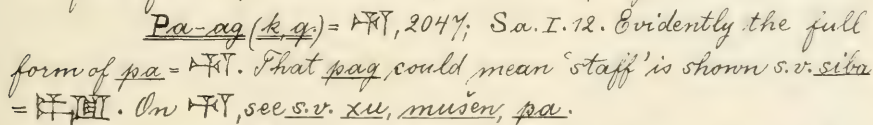 Pa-ag (k, q.) = 𒄷, 2047; Sa. I. 12. Evidently the full
form of pa = 𒄷. That pag could mean 'staff' is shown s.v. siba
= 𒉺𒇻. On 𒄷, see s.v. xu, mušen, pa.